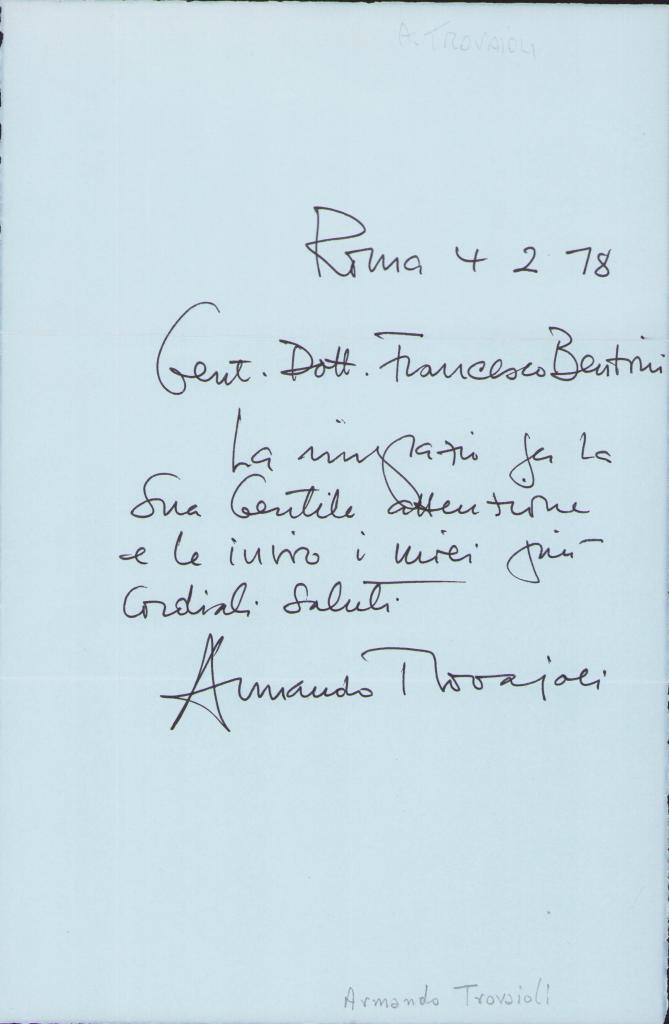 A. TROVAIOLI
Roma 4 2 78
Gent. Dott. Francesco Bentini
La ringrazio per la
Sua Gentile attenzione
e le invio i miei più
Cordiali Saluti
Armando Trovajoli
Armando Trovaioli